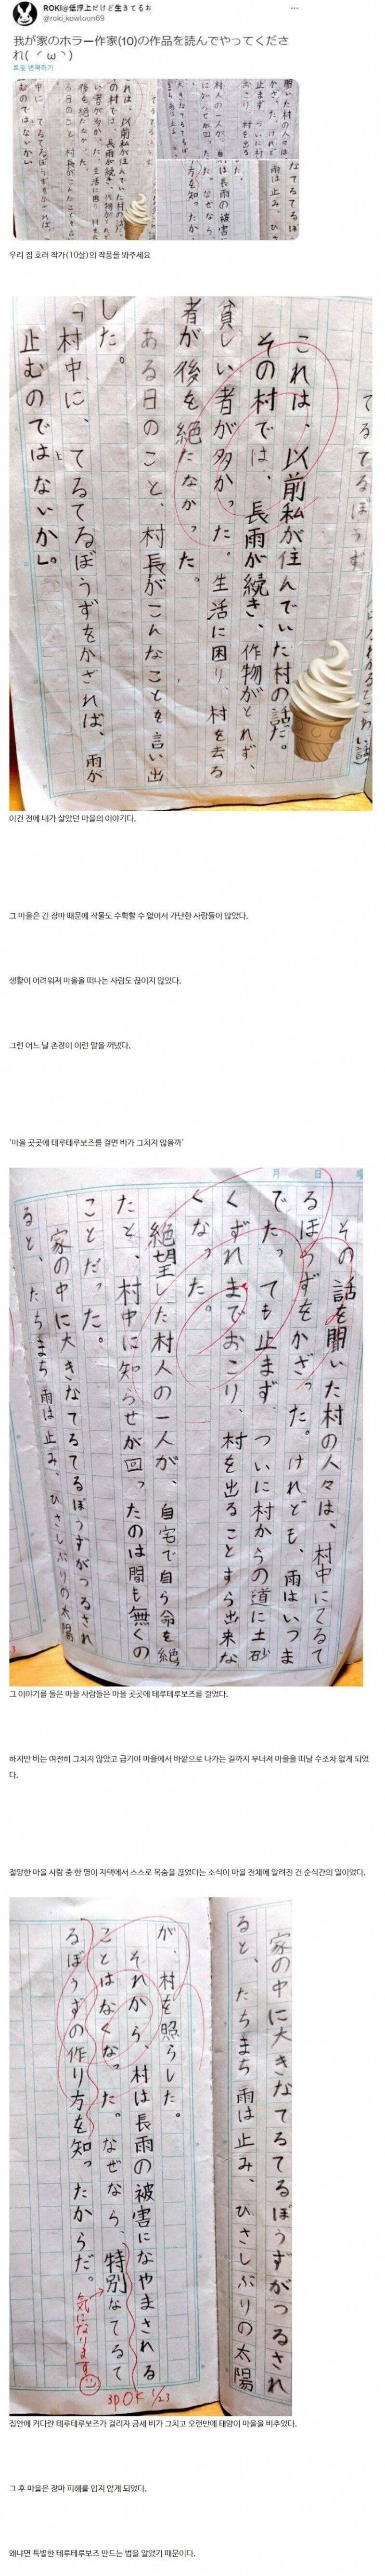 ROKI@低浮上だけど生きてるお
@roki_kowloon69
我が家のホラー作家(10)の作品を読んでやってくださ
れ( ´ω`)
트윗 번역하기
우리 집 호러 작가(10살)의 작품을 봐주세요
てるてるぼうず
これは、以前私が住んでいた村の話だ。
その村では、長雨が続き、作物がとれず、
貧しい者が多かった。生活に困り、村を去る
者が後を絶たなかった。
ある日のこと、村長がこんなことを言い出
した。
「村中に、てるてるぼうずをかざれば、雨が
止むのではないか」。
이건 전에 내가 살았던 마을의 이야기다.
그 마을은 긴 장마 때문에 작물도 수확할 수 없어서 가난한 사람들이 많았다.
생활이 어려워져 마을을 떠나는 사람도 끊이지 않았다.
그런 어느 날 촌장이 이런 말을 꺼냈다.
'마을 곳곳에 테루테루보즈를 걸면 비가 그치지 않을까'
月 日
その話を聞いた村の人々は、村中にてるて
るぼうずをかざった。けれども、雨はいつま
でたっても止まず、ついに村からの道に土砂
くずれまでおこり、村を出ることすら出来な
くなった。
絶望した村人の一人が、自宅で自ら命を絶
たと、村中に知らせが回ったのは間も無くの
ことだった。
家の中に大きなてるてるぼうずがつるされ
ると、たちまち雨は止み、ひさしぶりの太陽
그 이야기를 들은 마을 사람들은 마을 곳곳에 테루테루보즈를 걸었다.
하지만 비는 여전히 그치지 않았고 급기야 마을에서 바깥으로 나가는 길까지 무너져 마을을 떠날 수조차 없게 되었
다.
절망한 마을 사람 중 한 명이 자택에서 스스로 목숨을 끊었다는 소식이 마을 전체에 알려진 건 순식간의 일이었다.
家の中に大きなてるてるぼうずがつるされ
ると、たちまち雨は止み、ひさしぶりの太陽
が、村を照らした。
それから、村は長雨の被害になやまされる
ことはなくなった。なぜなら、特別なてるて
るぼうずの作り方を知ったからだ。
気になります
3p OK 1/23
집안에 커다란 테루테루보즈가 걸리자 금세 비가 그치고 오랜만에 태양이 마을을 비추었다.
그 후 마을은 장마 피해를 입지 않게 되었다.
왜냐면 특별한 테루테루보즈 만드는 법을 알았기 때문이다.